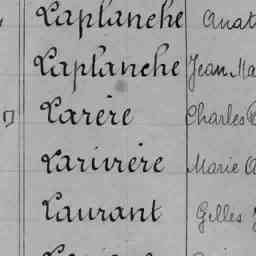 Laplanche Anat
Laplanche Jean Ma
Larère Charles
Larivière Marie A
Laurant Gilles J